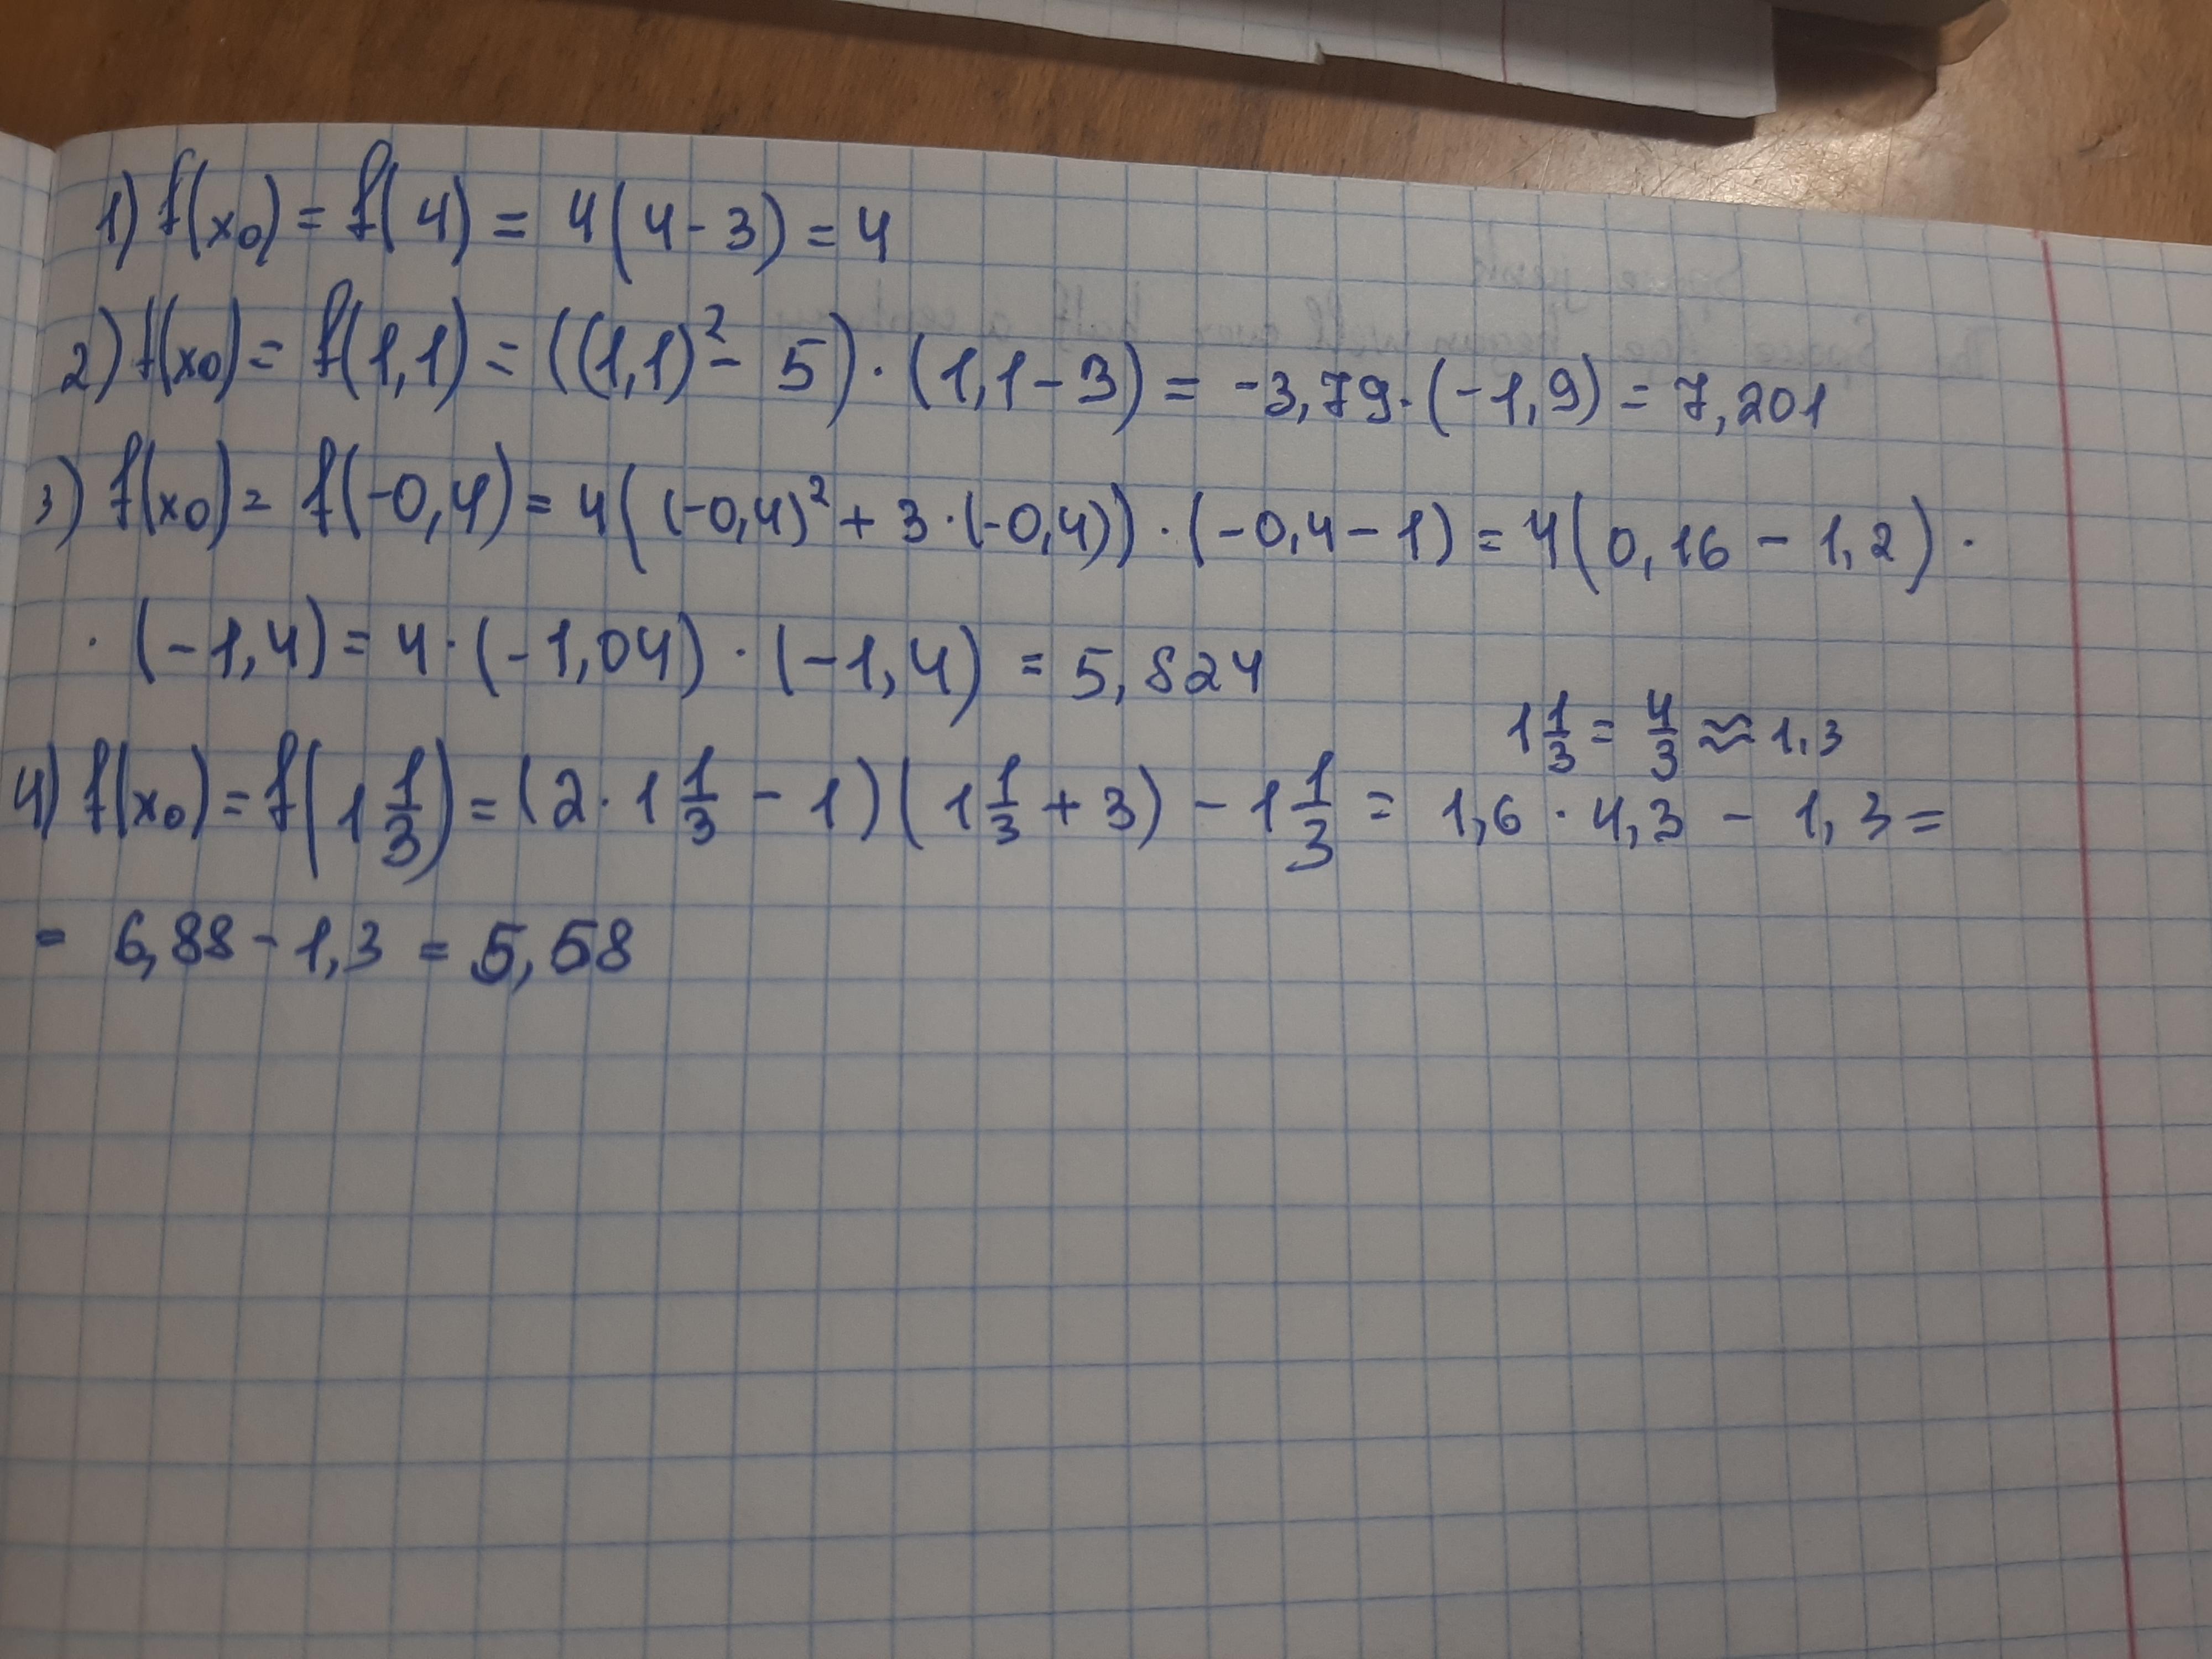 1) f(x₀) = f(4) = 4(4-3) = 4
2) f(x₀) = f(1,1) = ((1,1)² - 5) · (1,1 - 3) = -3,79 · (-1,9) = 7,201
3) f(x₀) = f(-0,4) = 4((-0,4)² + 3 · (-0,4)) · (-0,4 - 1) = 4(0,16 - 1,2) ·
· (-1,4) = 4 · (-1,04) · (-1,4) = 5,824
1 1/3 = 4/3 ≈ 1,3
4) f(x₀) = f(1 1/3) = (2 · 1 1/3 - 1)(1 1/3 + 3) - 1 1/3 = 1,6 · 4,3 - 1,3 =
= 6,88 - 1,3 = 5,58